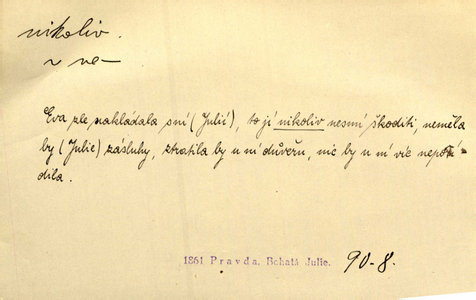 nikoliv.
v ne—
Eva zle nakládala s ní (Julií), to jí nikoliv nesmí škoditi, neměla
by (Julie) zásluhy, ztratila by u ní důvěru, nic by u ní víc
díla.
1861 Pravda. Bohatá Julie. 90-8.